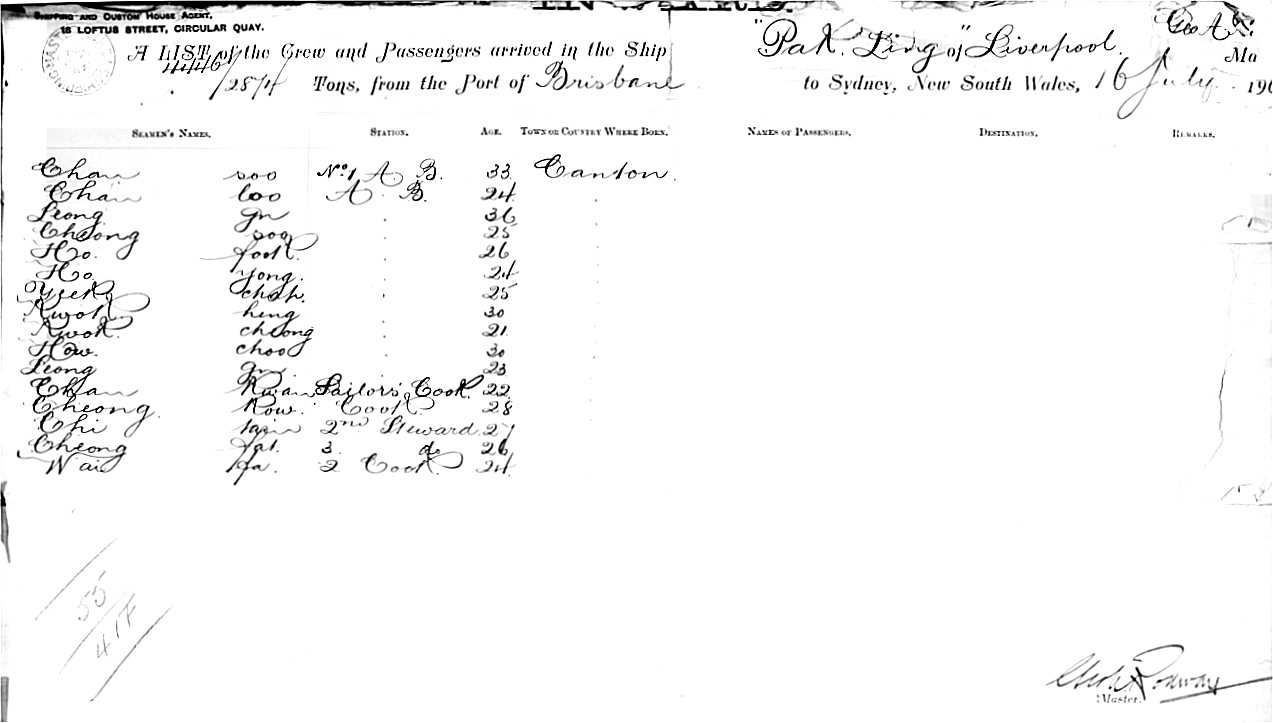 INWARD.
SHIPPING AND CUSTOM HOUSE AGENT,
18 LOFTUS STREET, CIRCULAR QUAY.
A LIST of the Crew and Passengers arrived in the Ship "Pak Ling" of Liverpool. Geo A
4446/2874 Tons, from the Port of Brisbane to Sydney, New South Wales, 16 July 190
SEAMEN'S NAMES. STATION. AGE. TOWN OR COUNTRY WHERE BORN. NAMES OF PASSENGERS. DESTINATION. REMARKS.
Chan soo No. 1 A. B. 33 Canton.
Chan loo A. B. 24
Leong 36
Cheong soo 25
Ho. fook 26
Ho. yong. 24
25
Kwok heng 30
Kwok cheong 21
How. choo 30
Leong 23
Chan Kwan Sailors' Cook. 22
Cheong. Kow. Cook. 28
Chi 2nd Steward 27
Cheong fat. 3. do 26
Wai 2 Cook. 24
55
417
Rodway
Master.